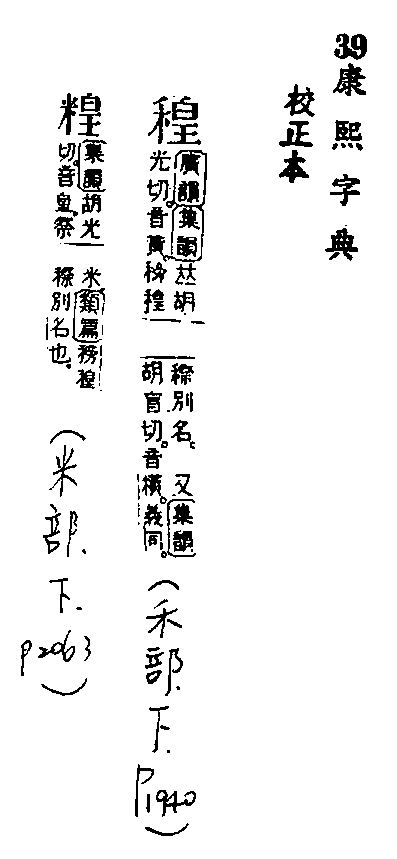 39康熙字典
校正本
䅣
廣韻集韻𠀤胡
光切。音黃。䅭䅣
穄別名。又集韻
胡盲切。音橫。義同。
(禾部.下.P1940)
䊗
集韻胡光
切。音皇。祭
米。類篇䅭䅣
穄別名也。
(米部.下.P2063)